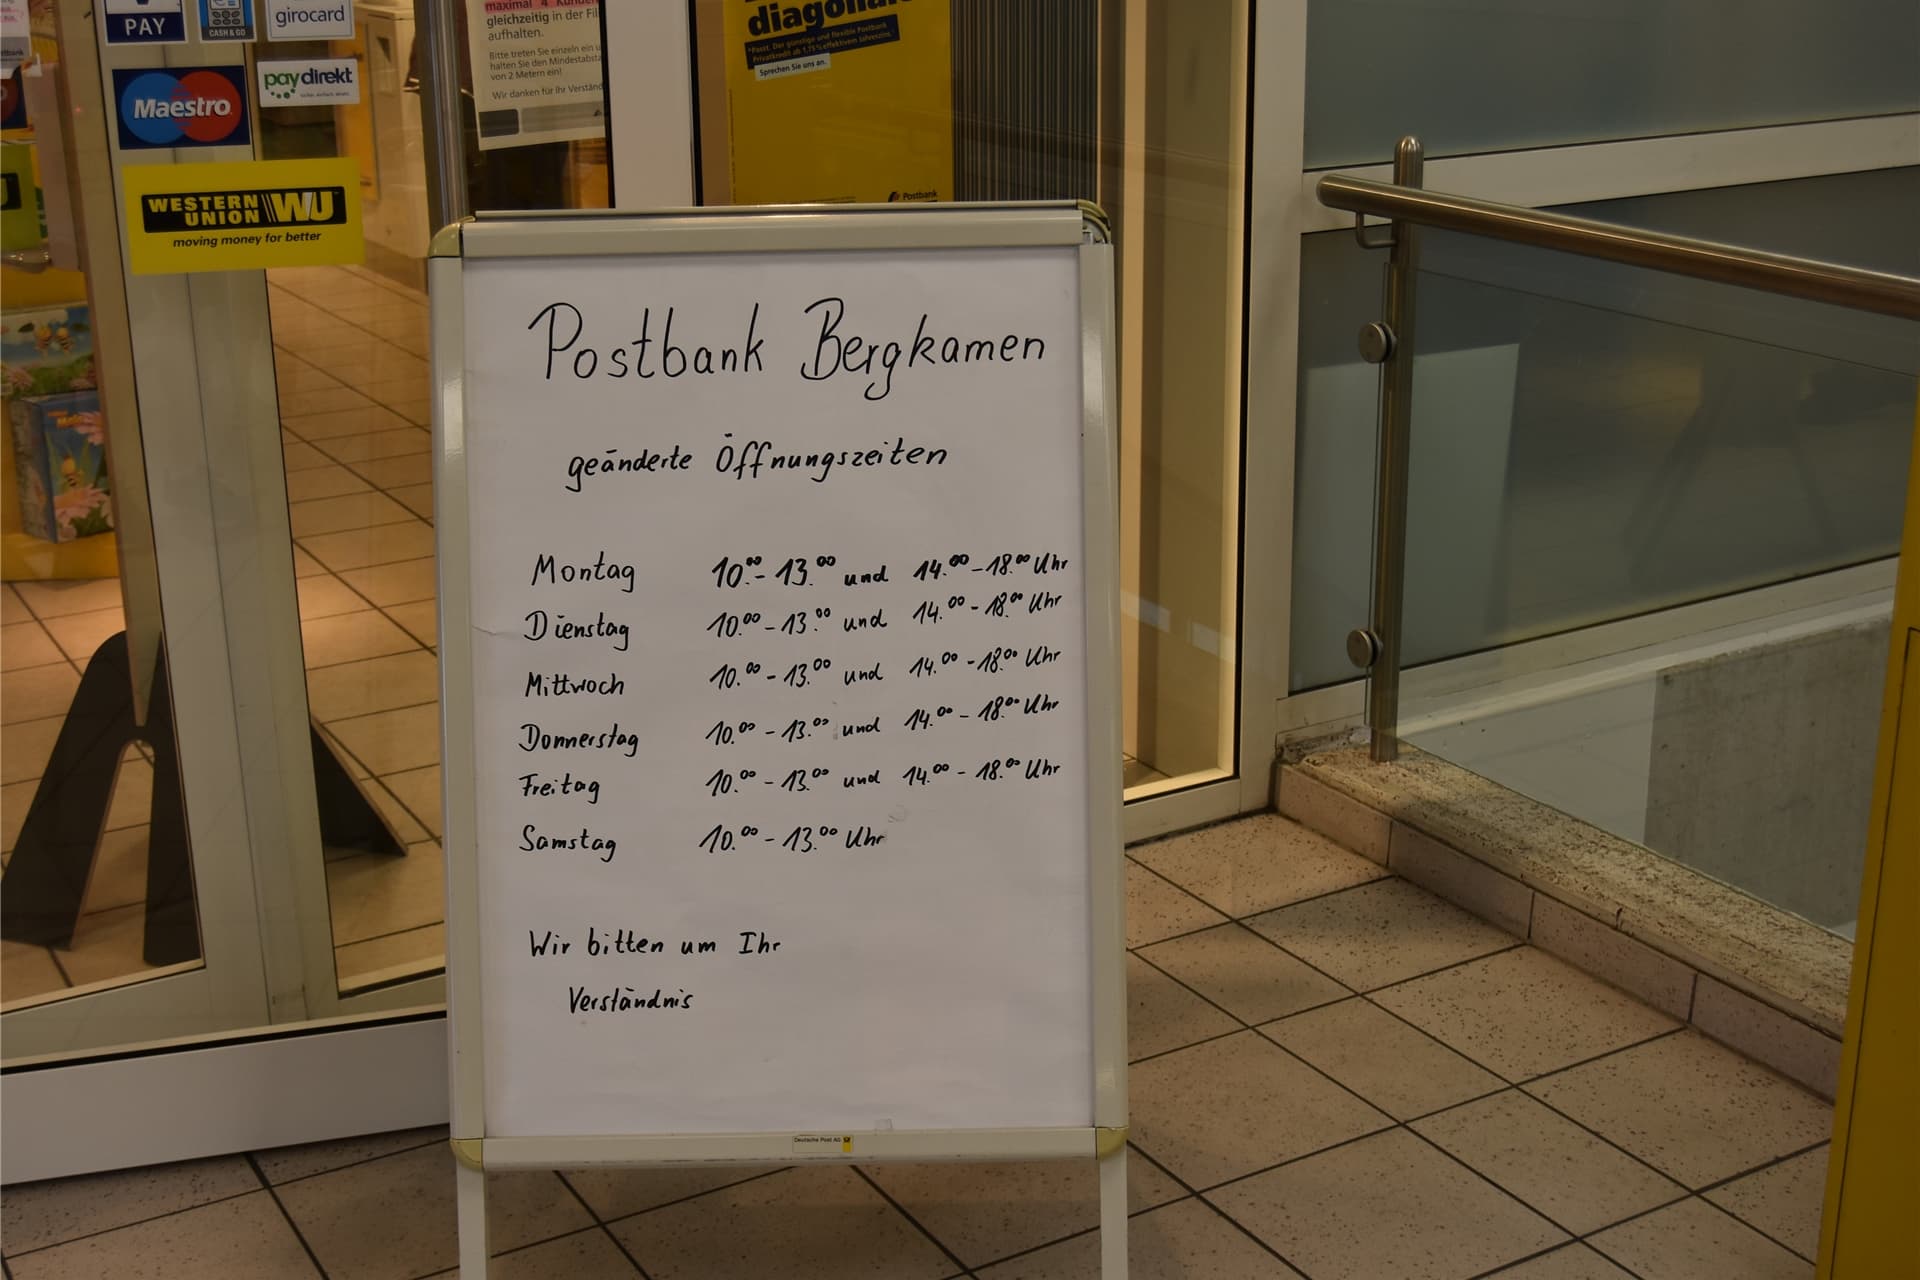 PAY
CASH & GO
girocard
Maestro
paydirekt
WESTERN UNION WU
moving money for better
maximal 4 Kunden
gleichzeitig in der Fil
aufhalten.
Bitte treten Sie einzeln ein u
halten Sie den Mindestabsta
von 2 Metern ein!
Wir danken für Ihr Verständ
diagonal
Privatkredit ab 1,75% effektivem Jahreszins.
Sprechen Sie uns an.
Postbank
Postbank Bergkamen
geänderte Öffnungszeiten
Montag 10.00 - 13.00 und 14.00 - 18.00 Uhr
Dienstag 10.00 - 13.00 und 14.00 - 18.00 Uhr
Mittwoch 10.00 - 13.00 und 14.00 - 18.00 Uhr
Donnerstag 10.00 - 13.00 und 14.00 - 18.00 Uhr
Freitag 10.00 - 13.00 und 14.00 - 18.00 Uhr
Samstag 10.00 - 13.00 Uhr
Wir bitten um Ihr
Verständnis
Deutsche Post AG